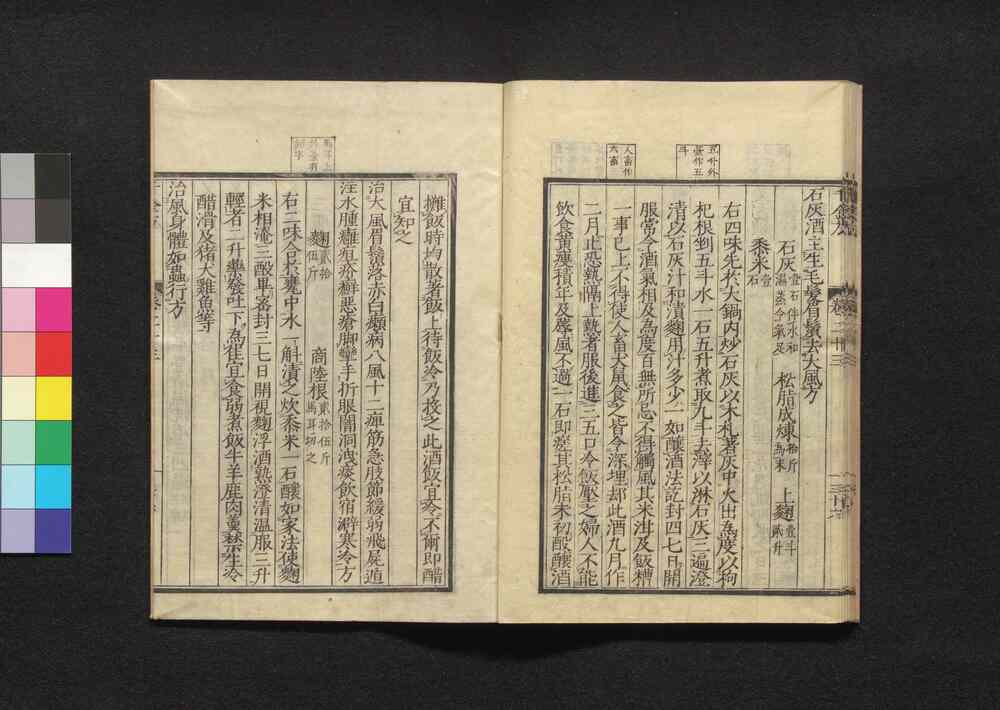 石灰酒主生毛髮眉鬚去大風方
石灰壹石件水和濕蒸令氣足 松脂成煉拾斤為末 上麴壹斗貳升
黍米壹石
右四味先於大鍋內炒石灰以木札著灰中火出為度以枸
杞根剉五斗水一石五升煮取九斗去滓以淋石灰三遍澄
清以石灰汁和漬麴用汁多少一如釀酒法訖封四七日開
服常令酒氣相及為度百無所忌不得觸風其米泔及飯糟
一事已上不得使人畜犬鼠食之皆令深埋却此酒九月作
二月止恐熱隔上熱者服後進三五口冷飯壓之婦人不能
飲食黃瘦積年及蓐風不過一石即瘥其松脂末初酘釀酒
五升外臺作五斗
人畜作六畜
攤飯時均散著飯上待飯冷乃投之此酒飯宜冷不爾即醋
宜知之
治大風眉鬚落赤白癩病八風十二痺筋急肢節緩弱飛屍遁
注水腫癰疽疥癬惡瘡腳攣手折眼闇洞洩痰飲宿澼寒冷方
麴貳拾伍斤 商陸根貳拾伍斤馬耳切之
右二味合於甕中水一斛漬之炊黍米一石釀如家法使麴
米相淹三酘畢密封三七日開視麴浮酒熟澄清溫服三升
輕者二升藥發吐下為佳宜食弱煮飯牛羊鹿肉羹禁生冷
醋滑及猪犬雞魚等
治風身體如蟲行方